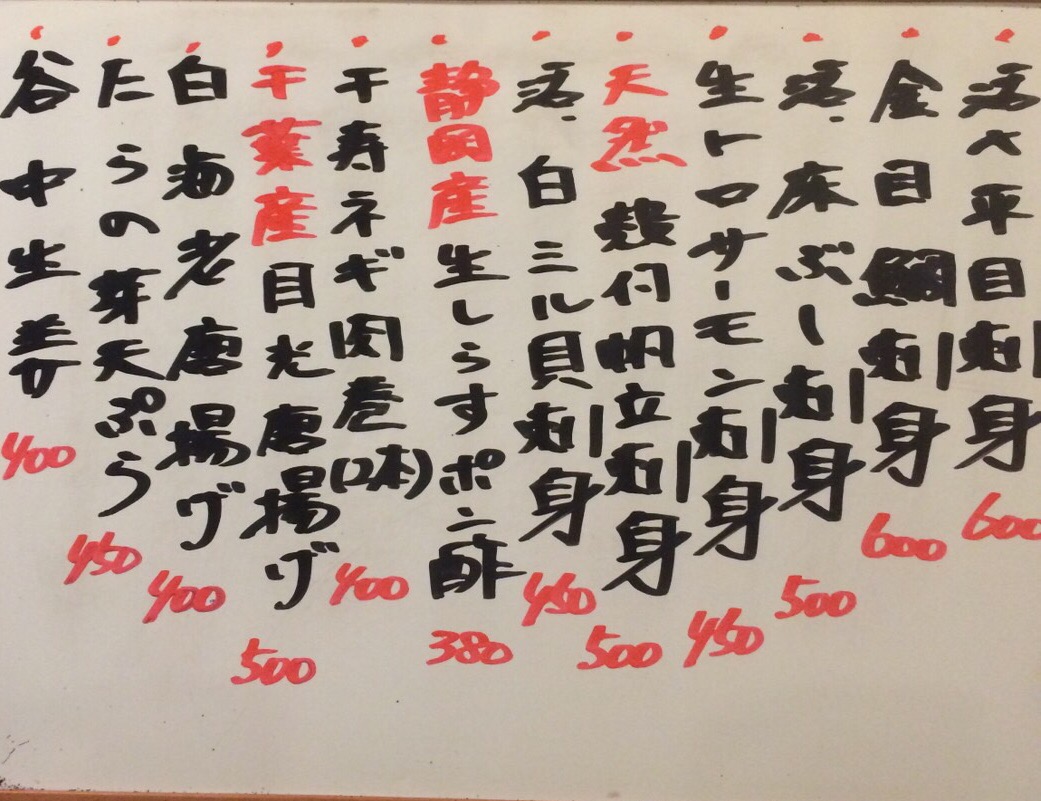 活〆平目刺身 600
金目鯛刺身 600
活、床ぶし刺身 500
生トロサーモン刺身 450
天然 殻付帆立刺身 500
活、白ミル貝刺身 450
静岡産生しらすポン酢 380
千寿ネギ肉巻(2本) 400
千葉産目光唐揚げ 500
白海老唐揚げ 400
たらの芽天ぷら 450
谷中生姜 400